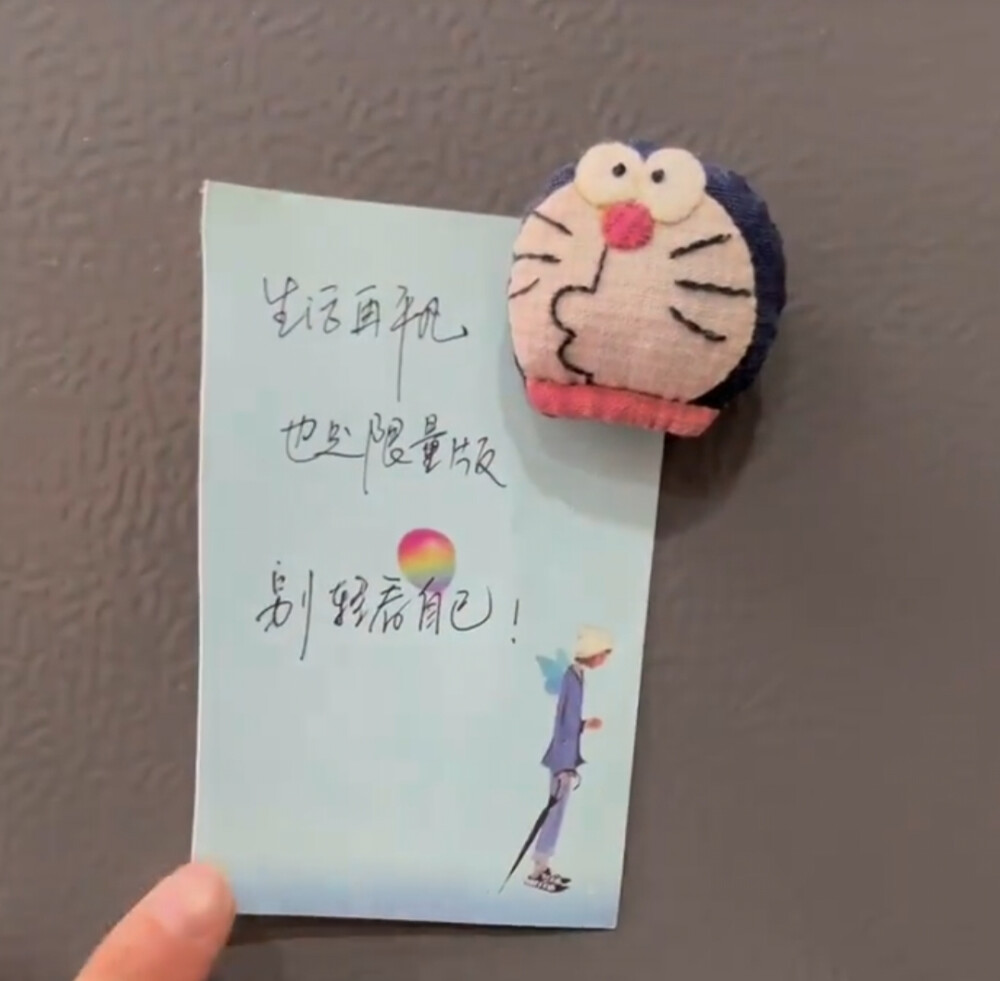 生活再平凡
也是限量版
别轻看自己！